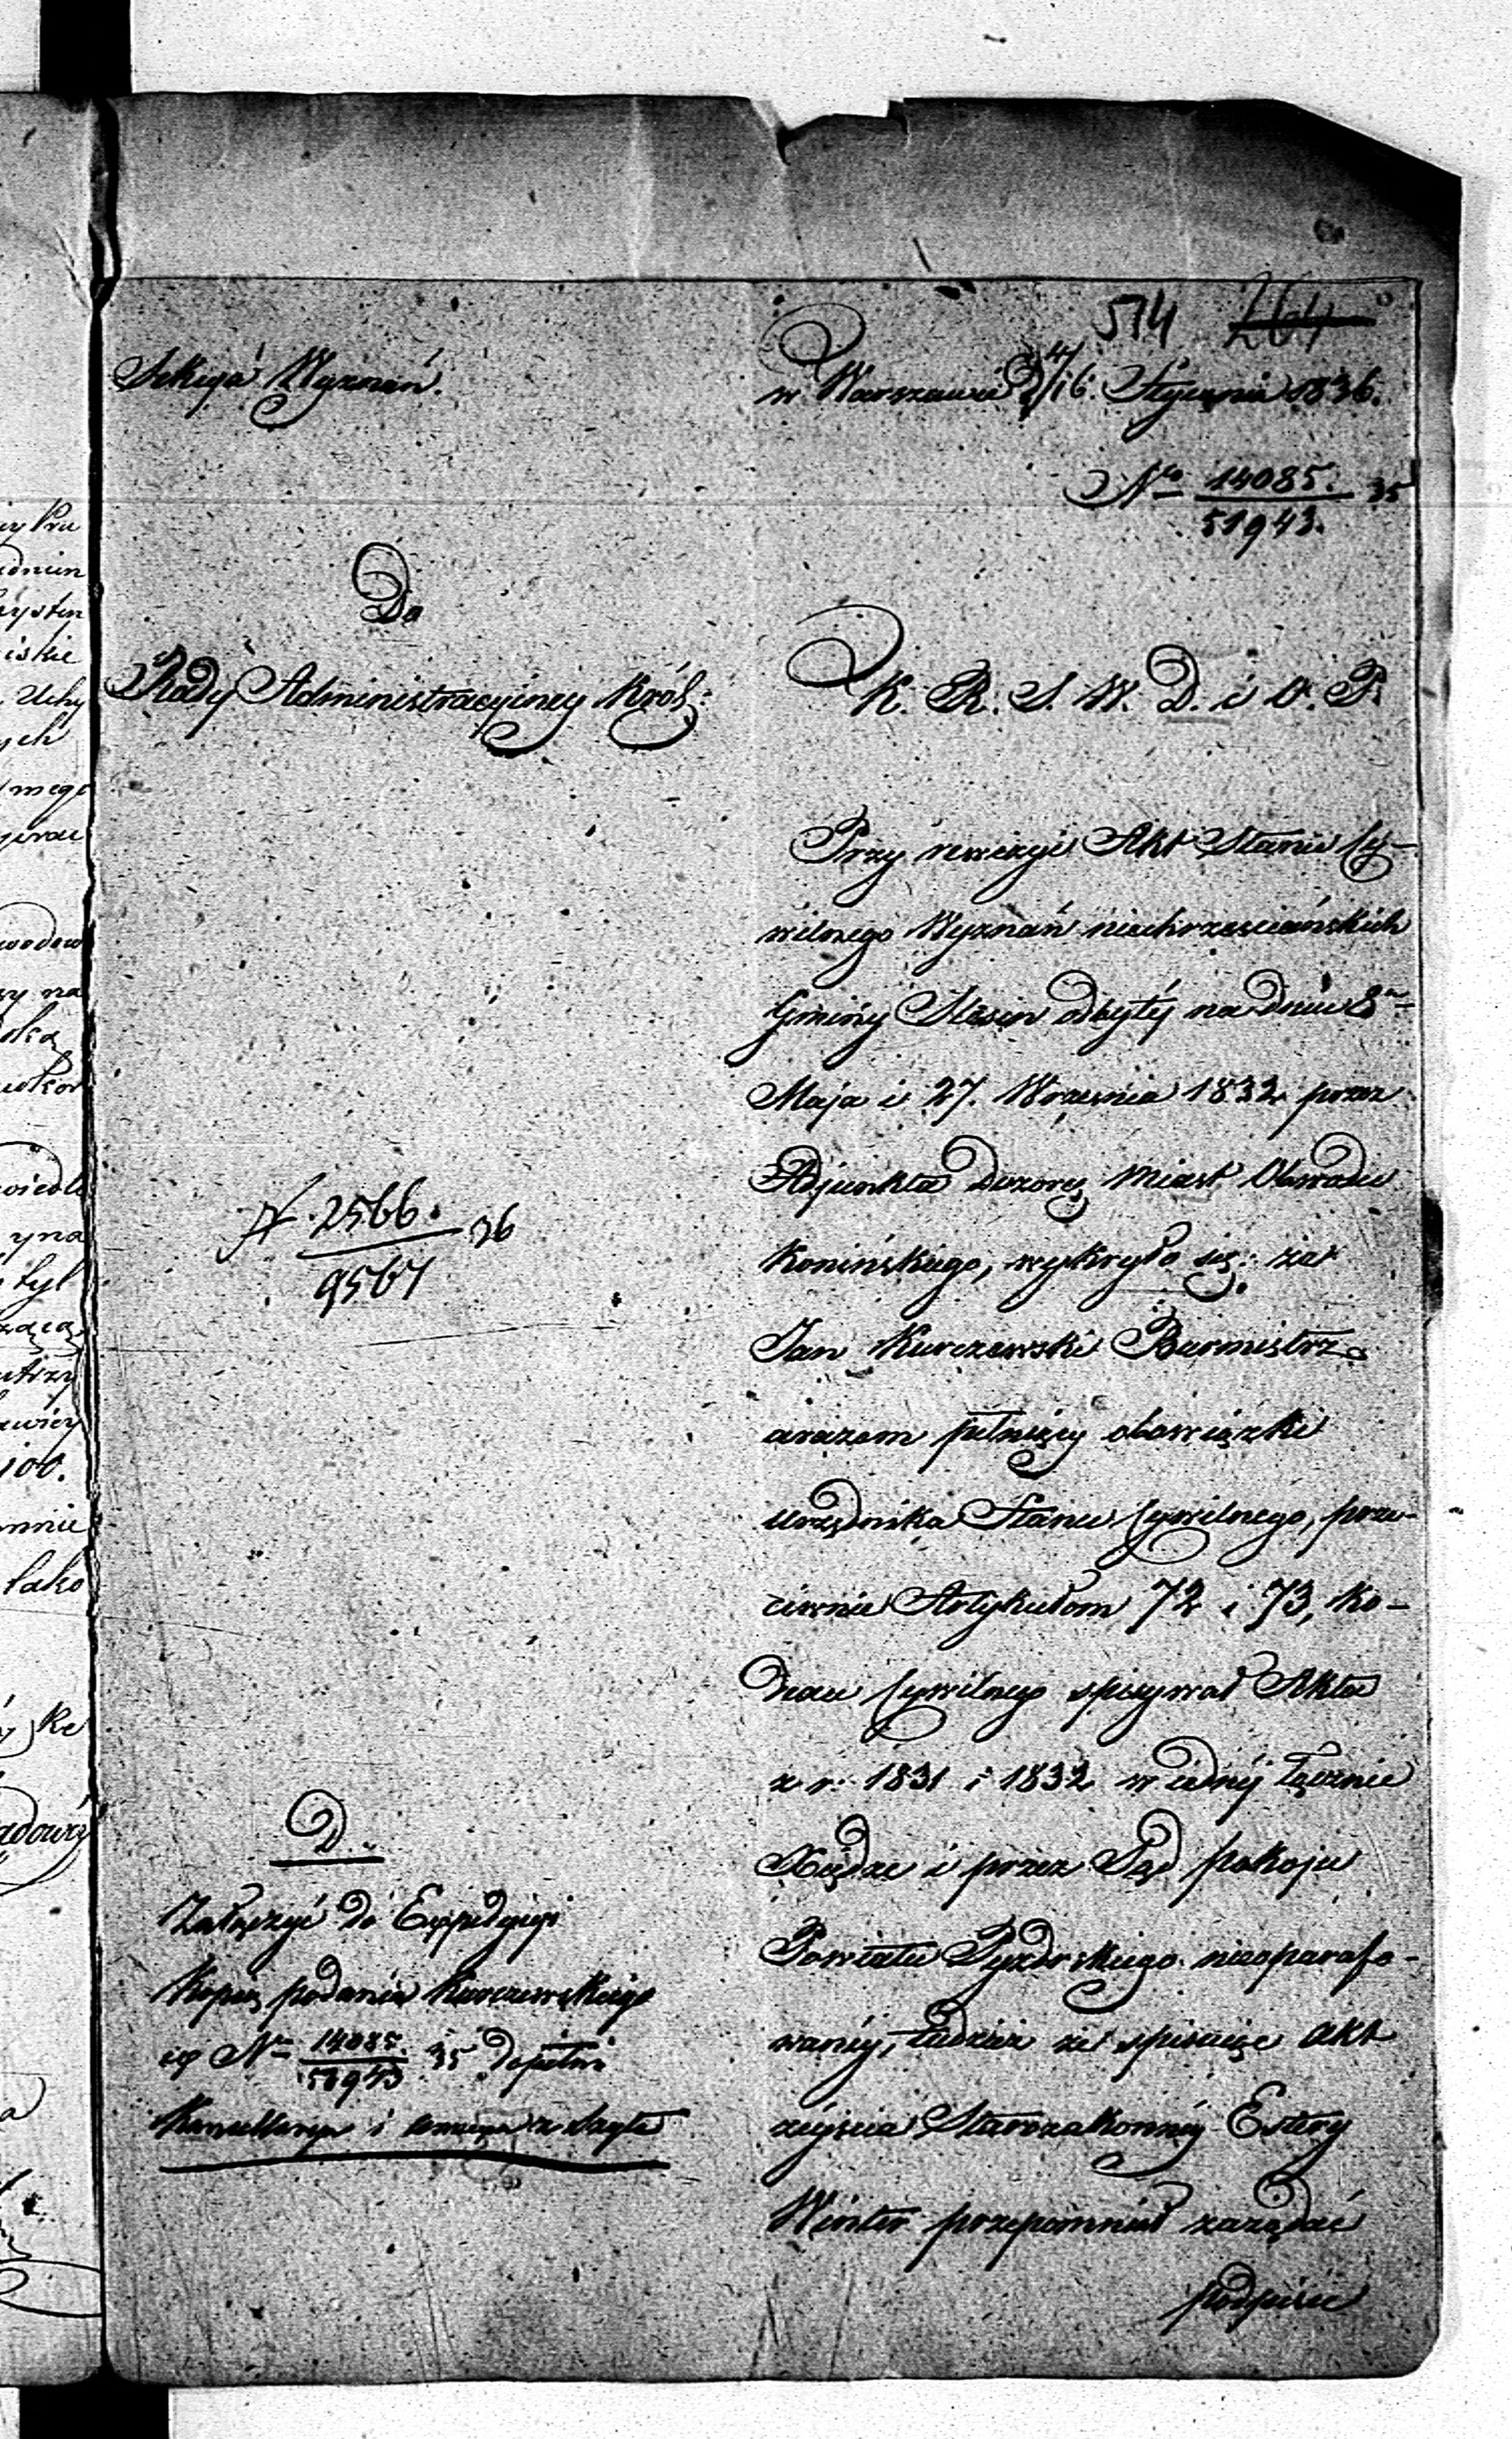 514 264
Sekcya Wyznań.
w Warszawie d 4/16. Stycznia 1836.
No 14085. 35
51943.
Do
Rady Administracyiney Król:
K. R. S. W. D. i O. P.
Przy rewizyi Akt Stanu Cy-
wilnego Wyznań niechrześciańskich
Gminy Slesin odbytéj na dniu 8
Maja i 27. Września 1832 przez
Adjunkta Dozorcy Miast Obwodu
Konińskiego, wykryło się: że
Jan Kurczewski Burmistrz
a razem pełniący obowiązki
Urzędnika Stanu Cywilnego, prze-
ciwnie Artykułom 72 i 73, Ko-
dexu Cywilnego spisywał Akta
z r. 1831 i 1832 w iednéj łącznie
Xiędze i przez Sąd Pokoju
Powiatu Pyzdrskiego nieoparafo-
wanéj, tudzież że spisuiąc Akt
zejścia Starozakonnéj Estery
Winter przepomniał zażądać
podpisu
N. 2566. 36
9567
D.
Załączyć do Expedycyi
Kopią podania Kurczewskiego
No 14085. 35 dopełni
51943
Kancellarya i